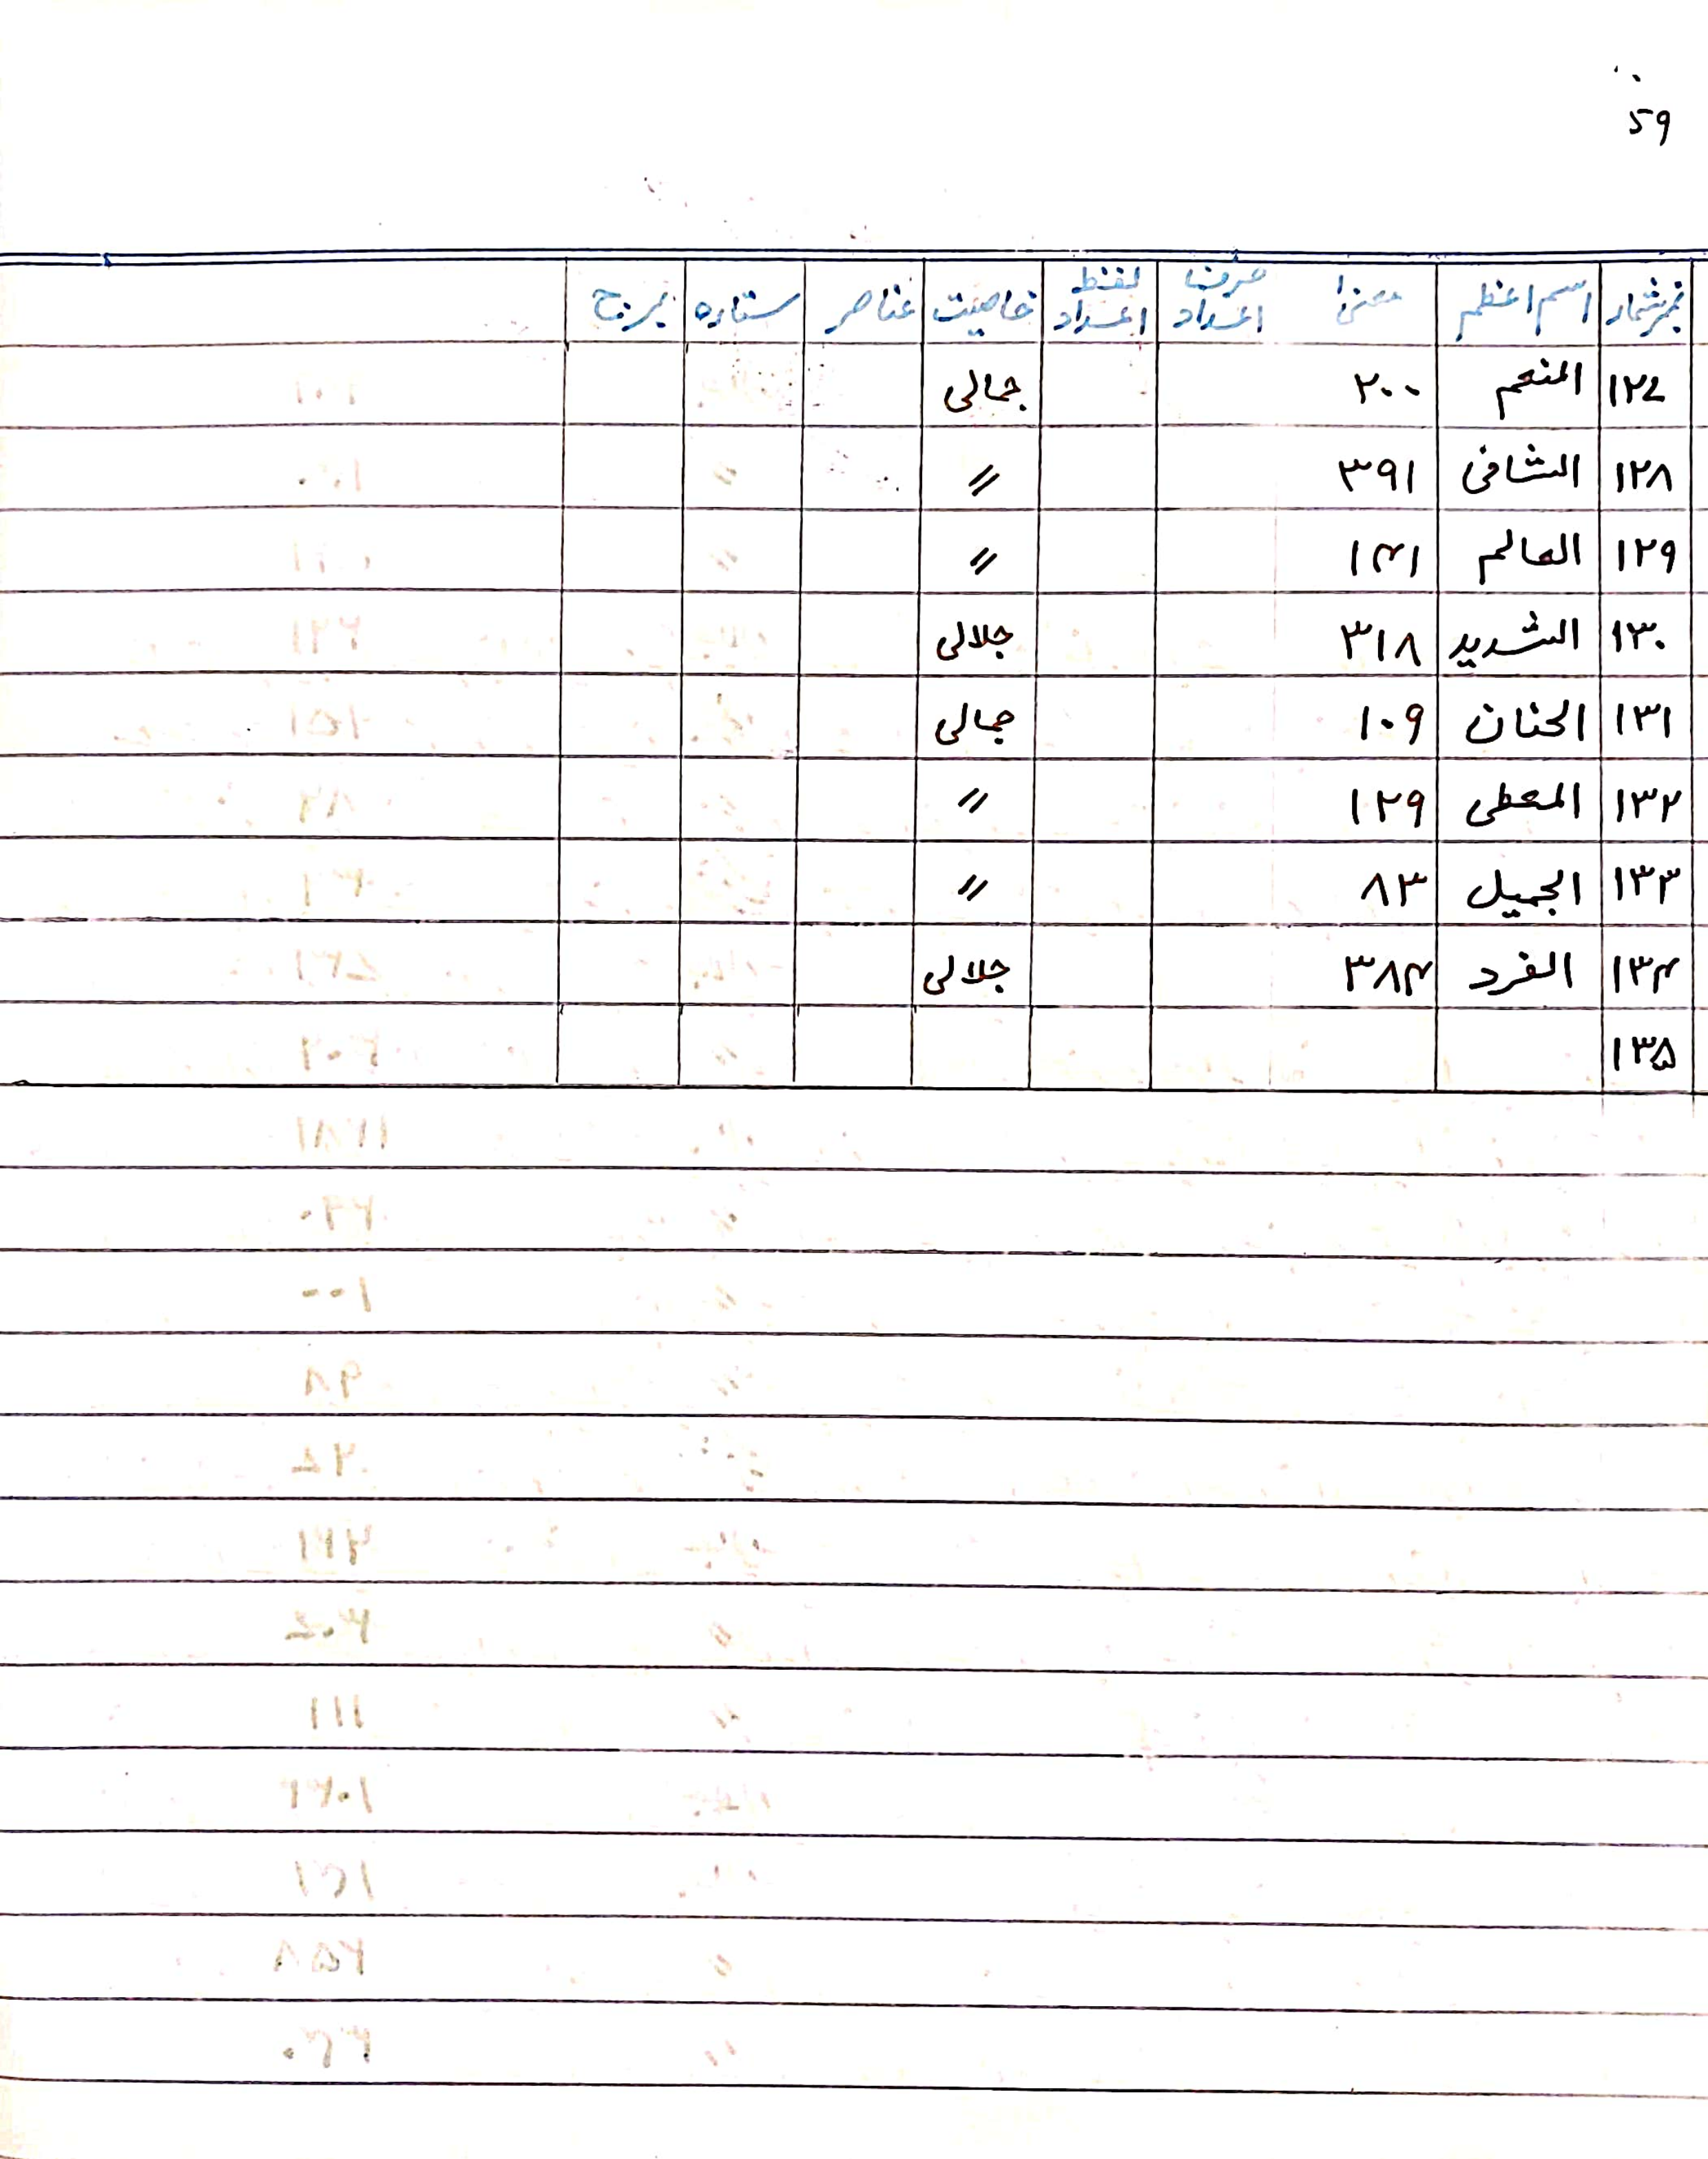 59
نمبر شمار اسم اعظم معنیٰ حرف اعداد لفظ اعداد خاصیت عناصر ستارہ برج
۱۲۷ المنعم ۲۰۰ جمالی
۱۲۸ الشافی ۳۹۱ //
۱۲۹ العالم ۱۴۱ //
۱۳۰ الشدید ۳۱۸ جلالی
۱۳۱ الحنان ۱۰۹ جمالی
۱۳۲ المعطی ۱۲۹ //
۱۳۳ الجمیل ۸۳ //
۱۳۴ الفرد ۳۸۴ جلالی
۱۳۵